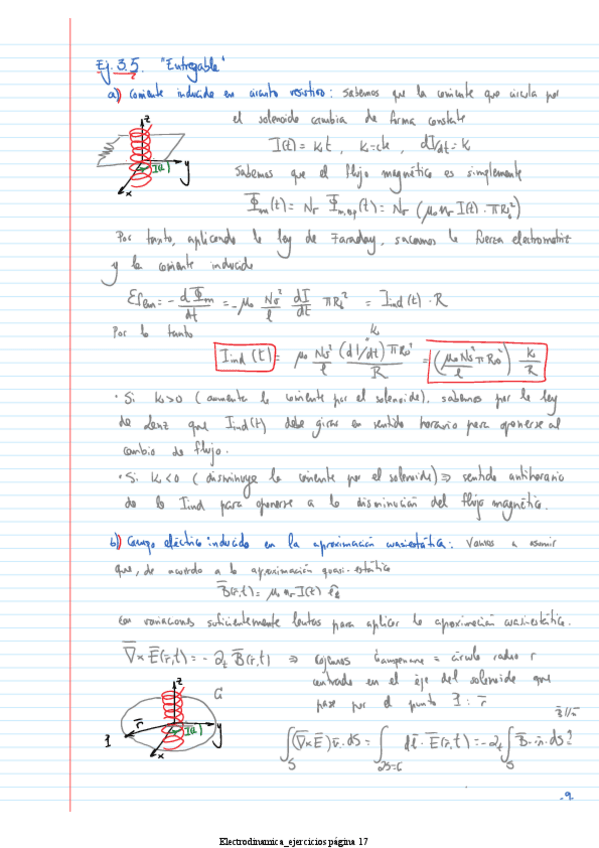 Ej. 3.5. "Entregable"
a) Corriente inducida en circuito resistivo: sabemos que la corriente que circula por
el solenoide cambia de forma constante
z
I(t)
y
x
I(t) = k₀t, k₀=cte, dI/dt = k₀
Sabemos que el flujo magnético es simplemente
Φm(t) = Nσ Φm,esp(t) = Nσ (μ₀ nσ I(t) · πR₀²)
Por tanto, aplicando la ley de Faraday, sacamos la fuerza electromotriz
y la corriente inducida
εfem = - dΦm/dt = -μ₀ Nσ²/l dI/dt πR₀² = Iind(t) · R
Por lo tanto
Iind(t) = μ₀ Nσ²/l (dI/dt) πR₀²/R = (μ₀ Nσ²/l πR₀²) k₀/R
k₀
· Si k₀>0 (aumenta la corriente por el solenoide), sabemos por la ley
de Lenz que Iind(t) debe girar en sentido horario para oponerse al
cambio de flujo.
· Si k₀<0 (disminuye la corriente por el solenoide) ⇒ sentido antihorario
de la Iind para oponerse a la disminución del flujo magnético.
b) Campo eléctrico inducido en la aproximación cuasiestática: Vamos a asumir
que, de acuerdo a la aproximación quasi-estática
B̄(r̄,t) = μ₀ nσ I(t)
con variaciones suficientemente lentas para aplicar la aproximación cuasiestática.
∇̄×Ē(r̄,t) = -∂t B̄(r̄,t) ⇒ cogemos = círculo radio r
centrado en el eje del solenoide que
pase por el punto 1: r̄
z
r̄
1
I(t)
y
x
∫S (∇̄×Ē) n̄·dS = ∫∂S=C dl̄·Ē(r̄,t) = -∂t ∫S B̄·n̄·dS
B̄∥n̄
Electrodinamica_ejercicios página 17